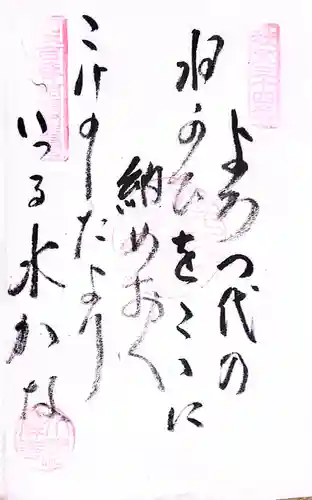 よろつ代の
ねかひをこゝに
納めおく
こけのしたより
いつる水かな